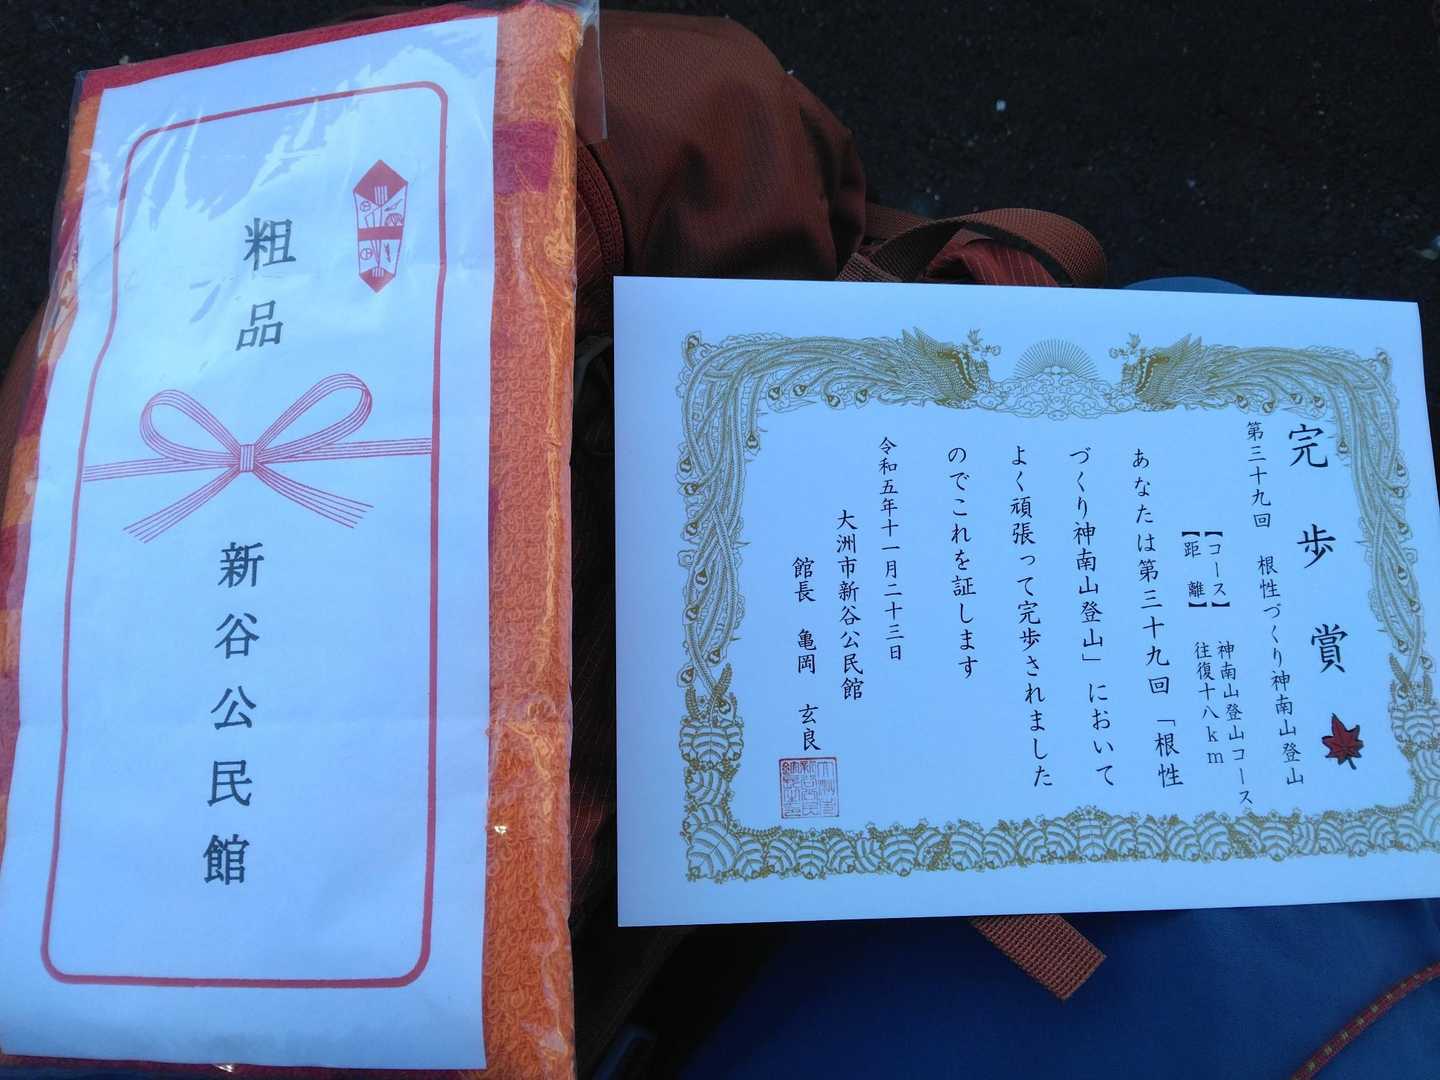 粗品
新谷公民館
完歩賞
第三十九回 根性づくり神南山登山
【コース】 神南山登山コース
【距離】 往復十八km
あなたは第三十九回「根性
づくり神南山登山」において
よく頑張って完歩されました
のでこれを証します
令和五年十一月二十三日
大洲市新谷公民館
館長 亀岡 玄良